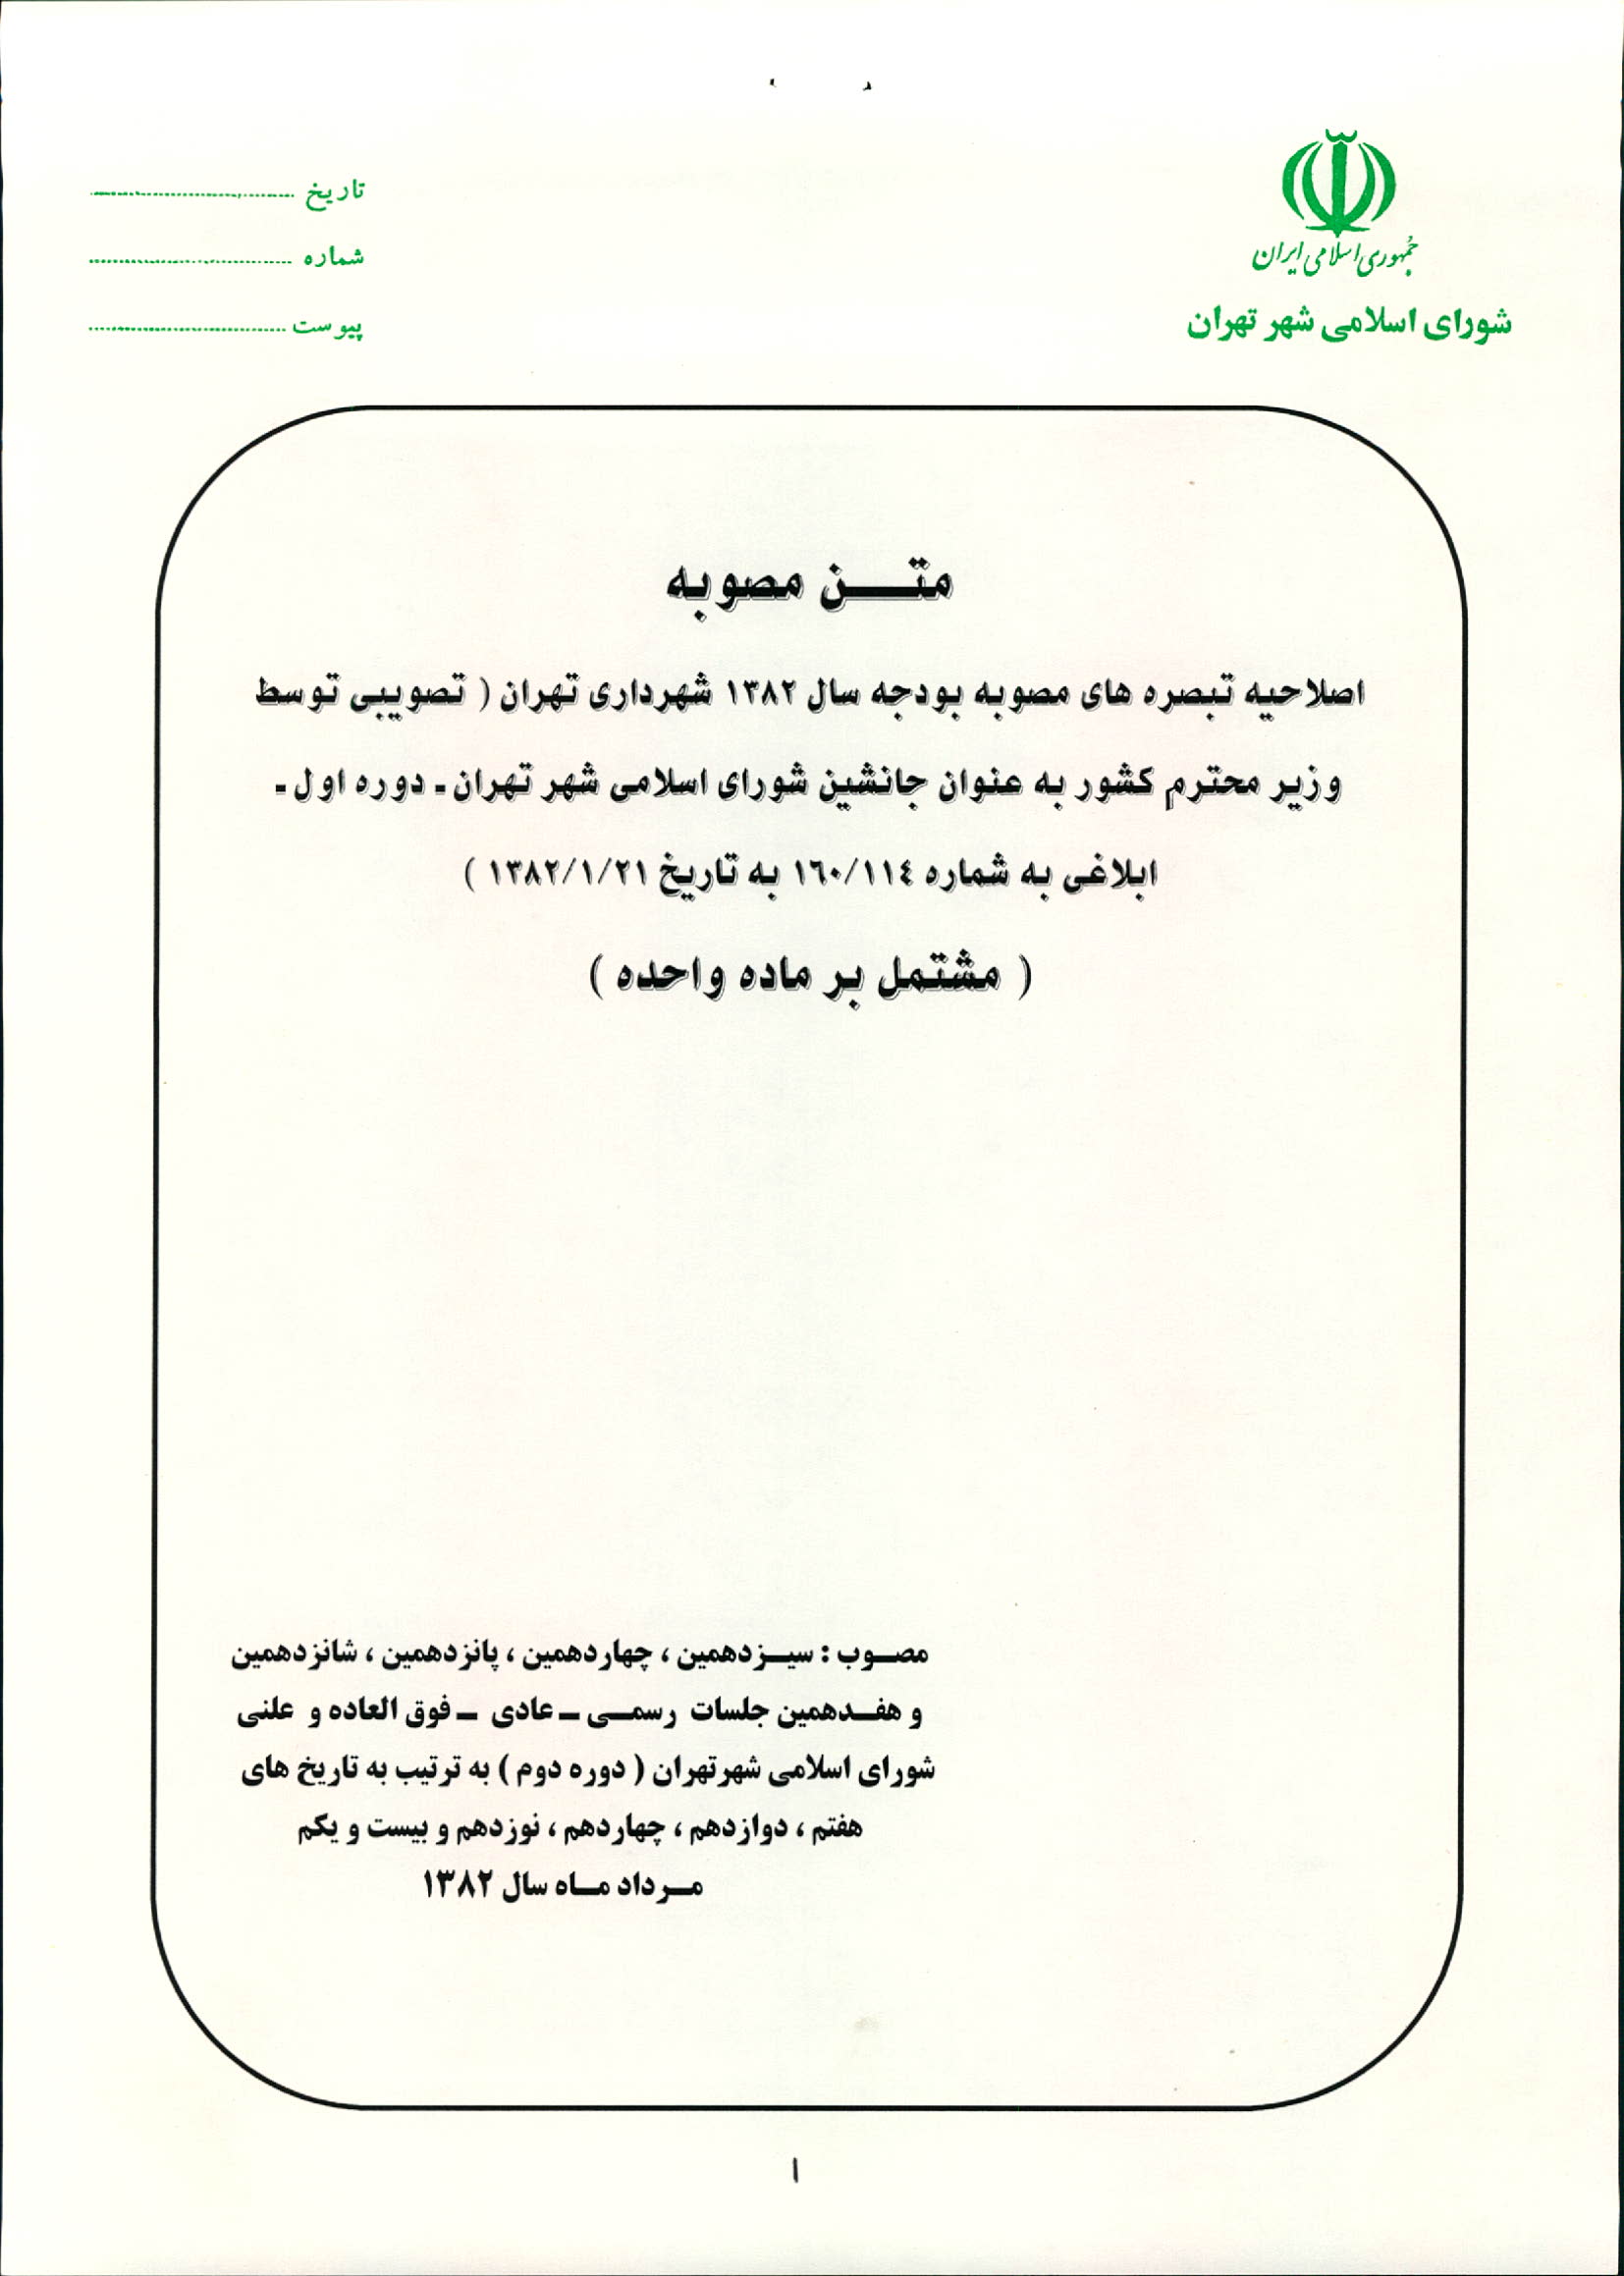 جمهوری اسلامی ایران
شورای اسلامی شهر تهران
تاریخ
شماره
پیوست
متن مصوبه
اصلاحیه تبصره های مصوبه بودجه سال ۱۳۸۲ شهرداری تهران ( تصویبی توسط
وزیر محترم کشور به عنوان جانشین شورای اسلامی شهر تهران ـ دوره اول ـ
ابلاغی به شماره ۱۶۰/۱۱۴ به تاریخ ۱۳۸۲/۱/۲۱ )
( مشتمل بر ماده واحده )
مصوب : سیزدهمین ، چهاردهمین ، پانزدهمین ، شانزدهمین
و هفدهمین جلسات رسمی ـ عادی ـ فوق العاده و علنی
شورای اسلامی شهرتهران ( دوره دوم ) به ترتیب به تاریخ های
هفتم ، دوازدهم ، چهاردهم ، نوزدهم و بیست و یکم
مرداد ماه سال ۱۳۸۲
۱